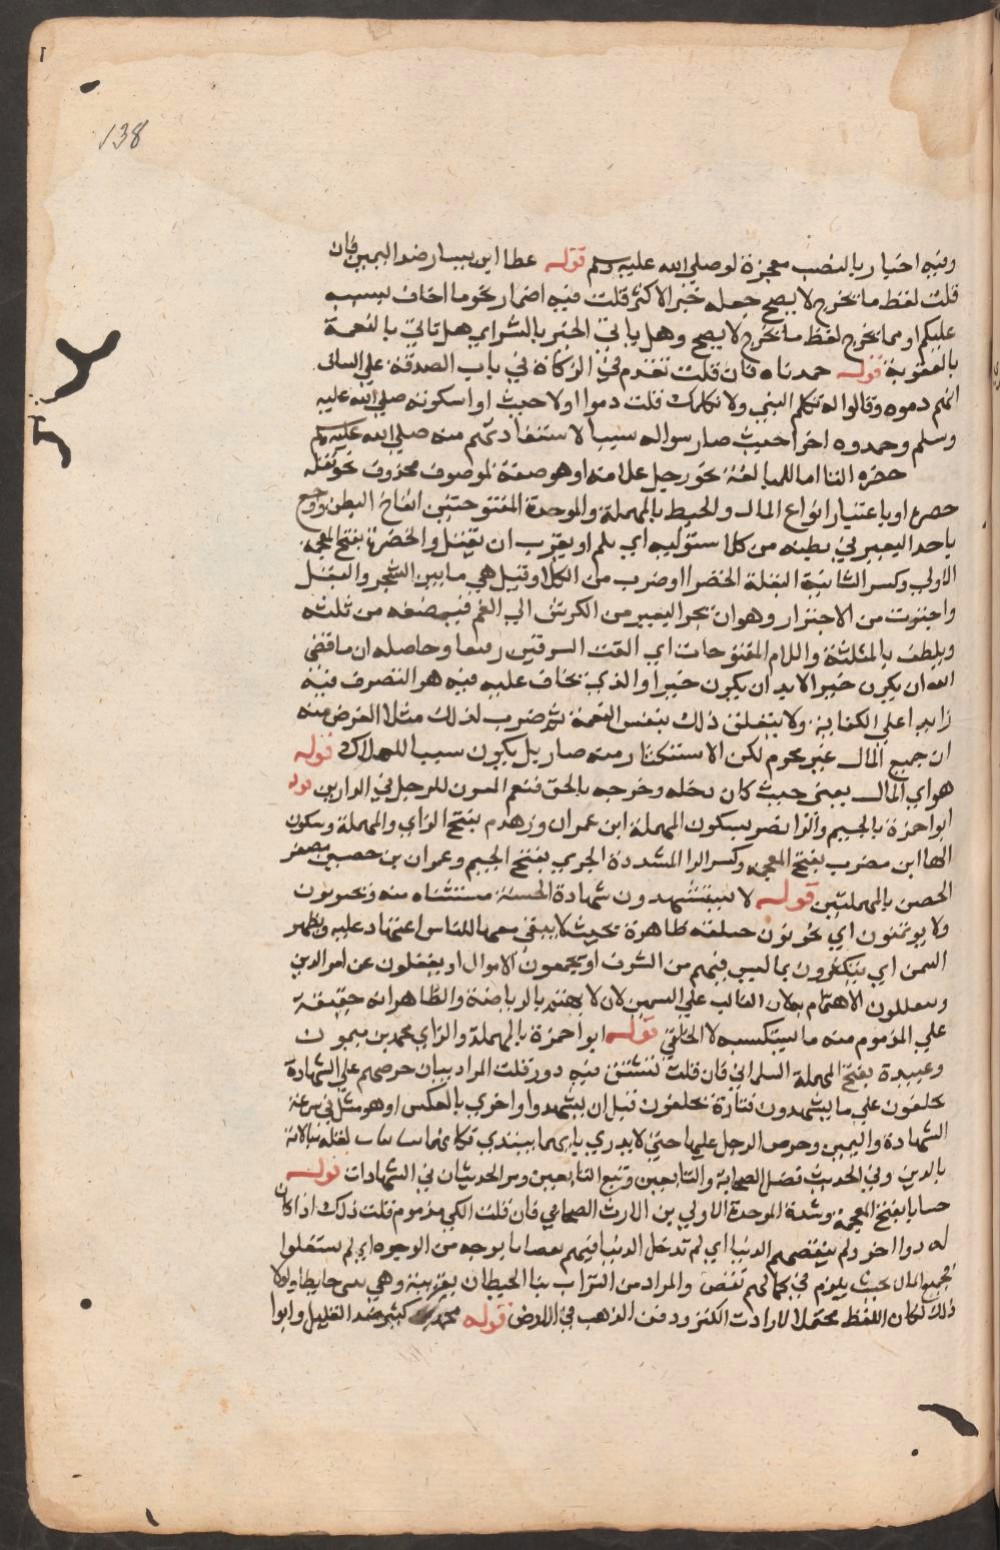 138
وفيه اخبار بالغيب معجزة لو صلي الله عليه وسلم قوله عطا ابن يسار ضد اليمين فان
قلت لفظ ما يخرج لا يصح جعله خبر الاكثر قلت فيه اضمار نحو ما اخاف بسببه
عليكم او مما يخرج لفظ ما يخرج لا يصح وهل ياتي الخير بالشر اي هل تاتي بالنعمة
بالعقوبة قوله حمدناه فان قلت تقدم في الزكاة في باب الصدقة علي
انهم ذموه وقالوا له تكلم النبي ولا يكلمك قلت ذموا اولا حيث او اسكوته صلي الله عليه
وسلم وحمدوه اخرا حيث صار سواله سببا لاستفادتهم منه صلي الله عليه وسلم
خضرة التا اما للمبالغة نحو رجل علامة او هو صفة لموصوف محذوف نحو بقلة
خضرة او باعتبار انواع المال والحبط بالمهملة والموحدة المفتوحتين انتفاخ البطن
ياخذ البعير في بطنه من كلا يستوليه اي يلم او يقرب ان يقتل والخضرة بفتح المعجمة
الاولي وكسر الثانية البقلة الخضرا او ضرب من الكلا وقيل هي ما بين الشجر والبقل
واجترت من الاجترار وهو ان يجر البعير من الكرش الي الفم فيمضغه من ثلثه
ويلطف بالمثلثة واللام المفتوحات اي القت السرقين وحاصله ان ما قضي
الله ان يكون خيرا لابد ان يكون خيرا والذي يخاف عليه فيه هو التصرف فيه
زايدا علي الكفاية ولا يتعلق ذلك بنفس النعمة ثم ضرب لذلك مثلا الغرض منه
ان جميع المال غير محرم لكن الاستكثار منه ضار بل يكون سببا للهلاك قوله
هو اي المال يعني حيث كان دخله وخرجه بالحق فنعم العون للرجل في الدارين قوله
ابوا حمزة بالجيم والزا نصر بسكون المهملة ابن عمران وزهدم بفتح الزاي والمهملة وسكون
الها ابن مضرب بفتح المعجمة وكسر الرا المشددة الجرمي بفتح الجيم وعمران بن حصين مصغر
الحصن بالمهملتين قوله لا يستشهدون شهادة الحسنة مستثناه منه ويخونون
ولا يوتمنون اي يخونون خيانة ظاهرة بحيث لا يبقي معها للناس اعتماد عليه ويظهر
السمن اي يتكثرون بما ليس فيهم من الشرف او يجمعون الاموال او يغفلون عن امر الدين
ويقللون الاهتمام لان الغالب علي السمين لان لا يهتم بالرياضة والظاهر انه حقيقة
علي المذموم منه ما يستكسبه لا الخلقي قوله ابوا حمزة بالمهملة والزاي محمد بن ميمون
وعبيدة بفتح المهملة السلماني فان قلت فيه دور قلت المراد بيان حرصهم علي الشهادة
يحلفون علي ما يشهدون فتارة يحلفون قبل ان يشهدوا واخري بالعكس او هو مثل في سرعة
الشهادة واليمين وحرص الرجل عليها حتي لا يدري بايهما يبتدي فكانهما لقلة مبالاته
بالدين وفي الحديث فضل الصحابة والتابعين وتبع التابعين ومر الحديثان في الشهادات قوله
خبابا بفتح المعجمة وشدة الموحدة الاولي بن الارت الصحابي فان قلت الكي مذموم قلت ذلك اذا كان
له دوا اخر ولم ينقصهم الدنيا اي لم تدخل الدنيا فيهم بوجه من الوجوه اي لم يشتغلوا
بجمع المال بحيث يلزم في كمالهم نقص والمراد من التراب بنا الحيطان بقرينة وهي يبني حايطا ولولا
ذلك لكان اللفظ محتملا لارادت الكنز ودفن الذهب في الارض قوله محمد بن كثير ضد القليل وابوا